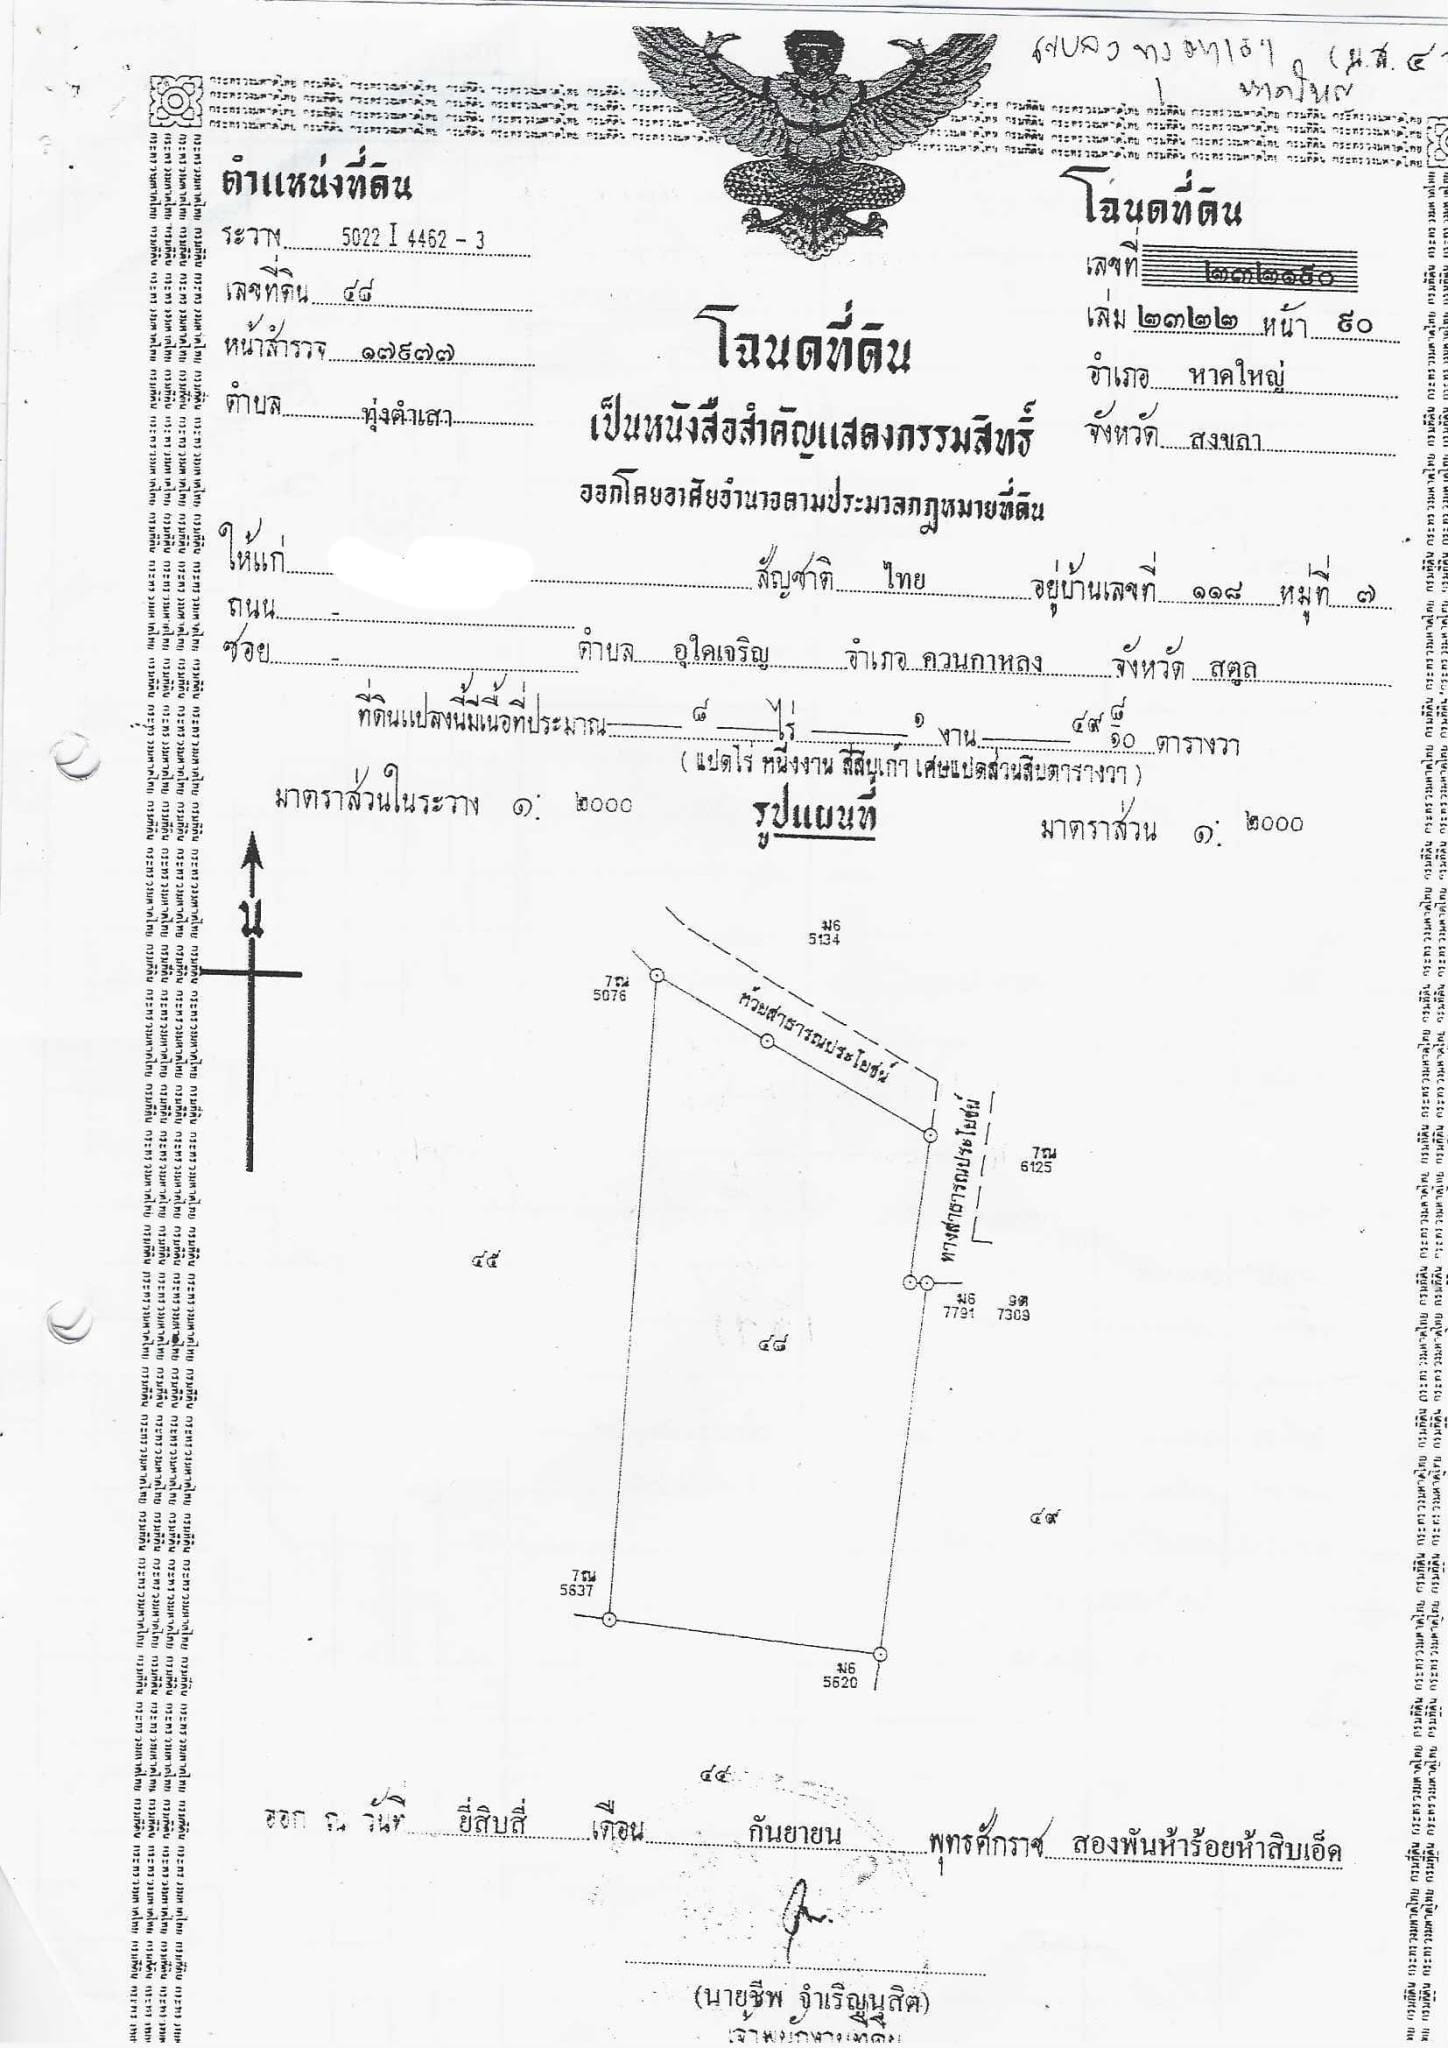 (น.ส. ๔
หาดใหญ่
ตำแหน่งที่ดิน
ระวาง 5022 I 4462 - 3
เลขที่ดิน ๔๘
หน้าสำรวจ ๑๗๙๗๗
ตำบล ทุ่งตำเสา
โฉนดที่ดิน
เลขที่ ๒๓๒๑๙๐
เล่ม ๒๓๒๒ หน้า ๙๐
อำเภอ หาดใหญ่
จังหวัด สงขลา
โฉนดที่ดิน
เป็นหนังสือสำคัญแสดงกรรมสิทธิ์
ออกโดยอาศัยอำนาจตามประมวลกฎหมายที่ดิน
ให้แก่ สัญชาติ ไทย อยู่บ้านเลขที่ ๑๑๘ หมู่ที่ ๗
ถนน -
ซอย - ตำบล อุใดเจริญ อำเภอ ควนกาหลง จังหวัด สตูล
ที่ดินแปลงนี้มีเนื้อที่ประมาณ ๘ ไร่ ๑ งาน ๔๙ ๘/๑๐ ตารางวา
( แปดไร่ หนึ่งงาน สี่สิบเก้า เศษแปดส่วนสิบตารางวา )
มาตราส่วนในระวาง ๑: ๒๐๐๐ รูปแผนที่ มาตราส่วน ๑: ๒๐๐๐
น
ม6
5134
7ณ
5076
ห้วยสาธารณประโยชน์
ทางสาธารณประโยชน์
7ณ
6125
๔๕
ม6
7791
9ต
7309
๔๘
๔๙
7ณ
5637
ม6
5620
๔๔
ออก ณ วันที่ ยี่สิบสี่ เดือน กันยายน พุทธศักราช สองพันห้าร้อยห้าสิบเอ็ด
(นายชีพ จำเริญนุสิต)
เจ้าพนักงานที่ดิน